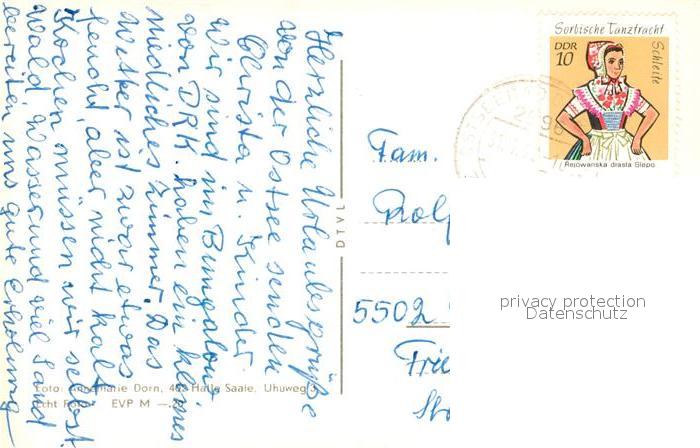 Herzliche Urlaubsgrüße
von der Ostsee senden
Christa u. Kinder
Wir sind im Bungalow
vom DRK. haben ein kleines
niedliches Zimmer. Das
Wetter ist zwar etwas
feucht, aber nicht kalt
Kochen müssen wir selbst.
Wald Wasser und viel Sand
bereiten uns gute Erholung
Foto: Annemarie Dorn, 402 Halle Saale, Uhuweg 3
Echt Foto EVP M
DTVL
Sorbische Tanztracht
DDR
10
Schleife
Rejowanska drasta Slepo
Fam.
Rolf
5502
Frie
Str
privacy protection
Datenschutz